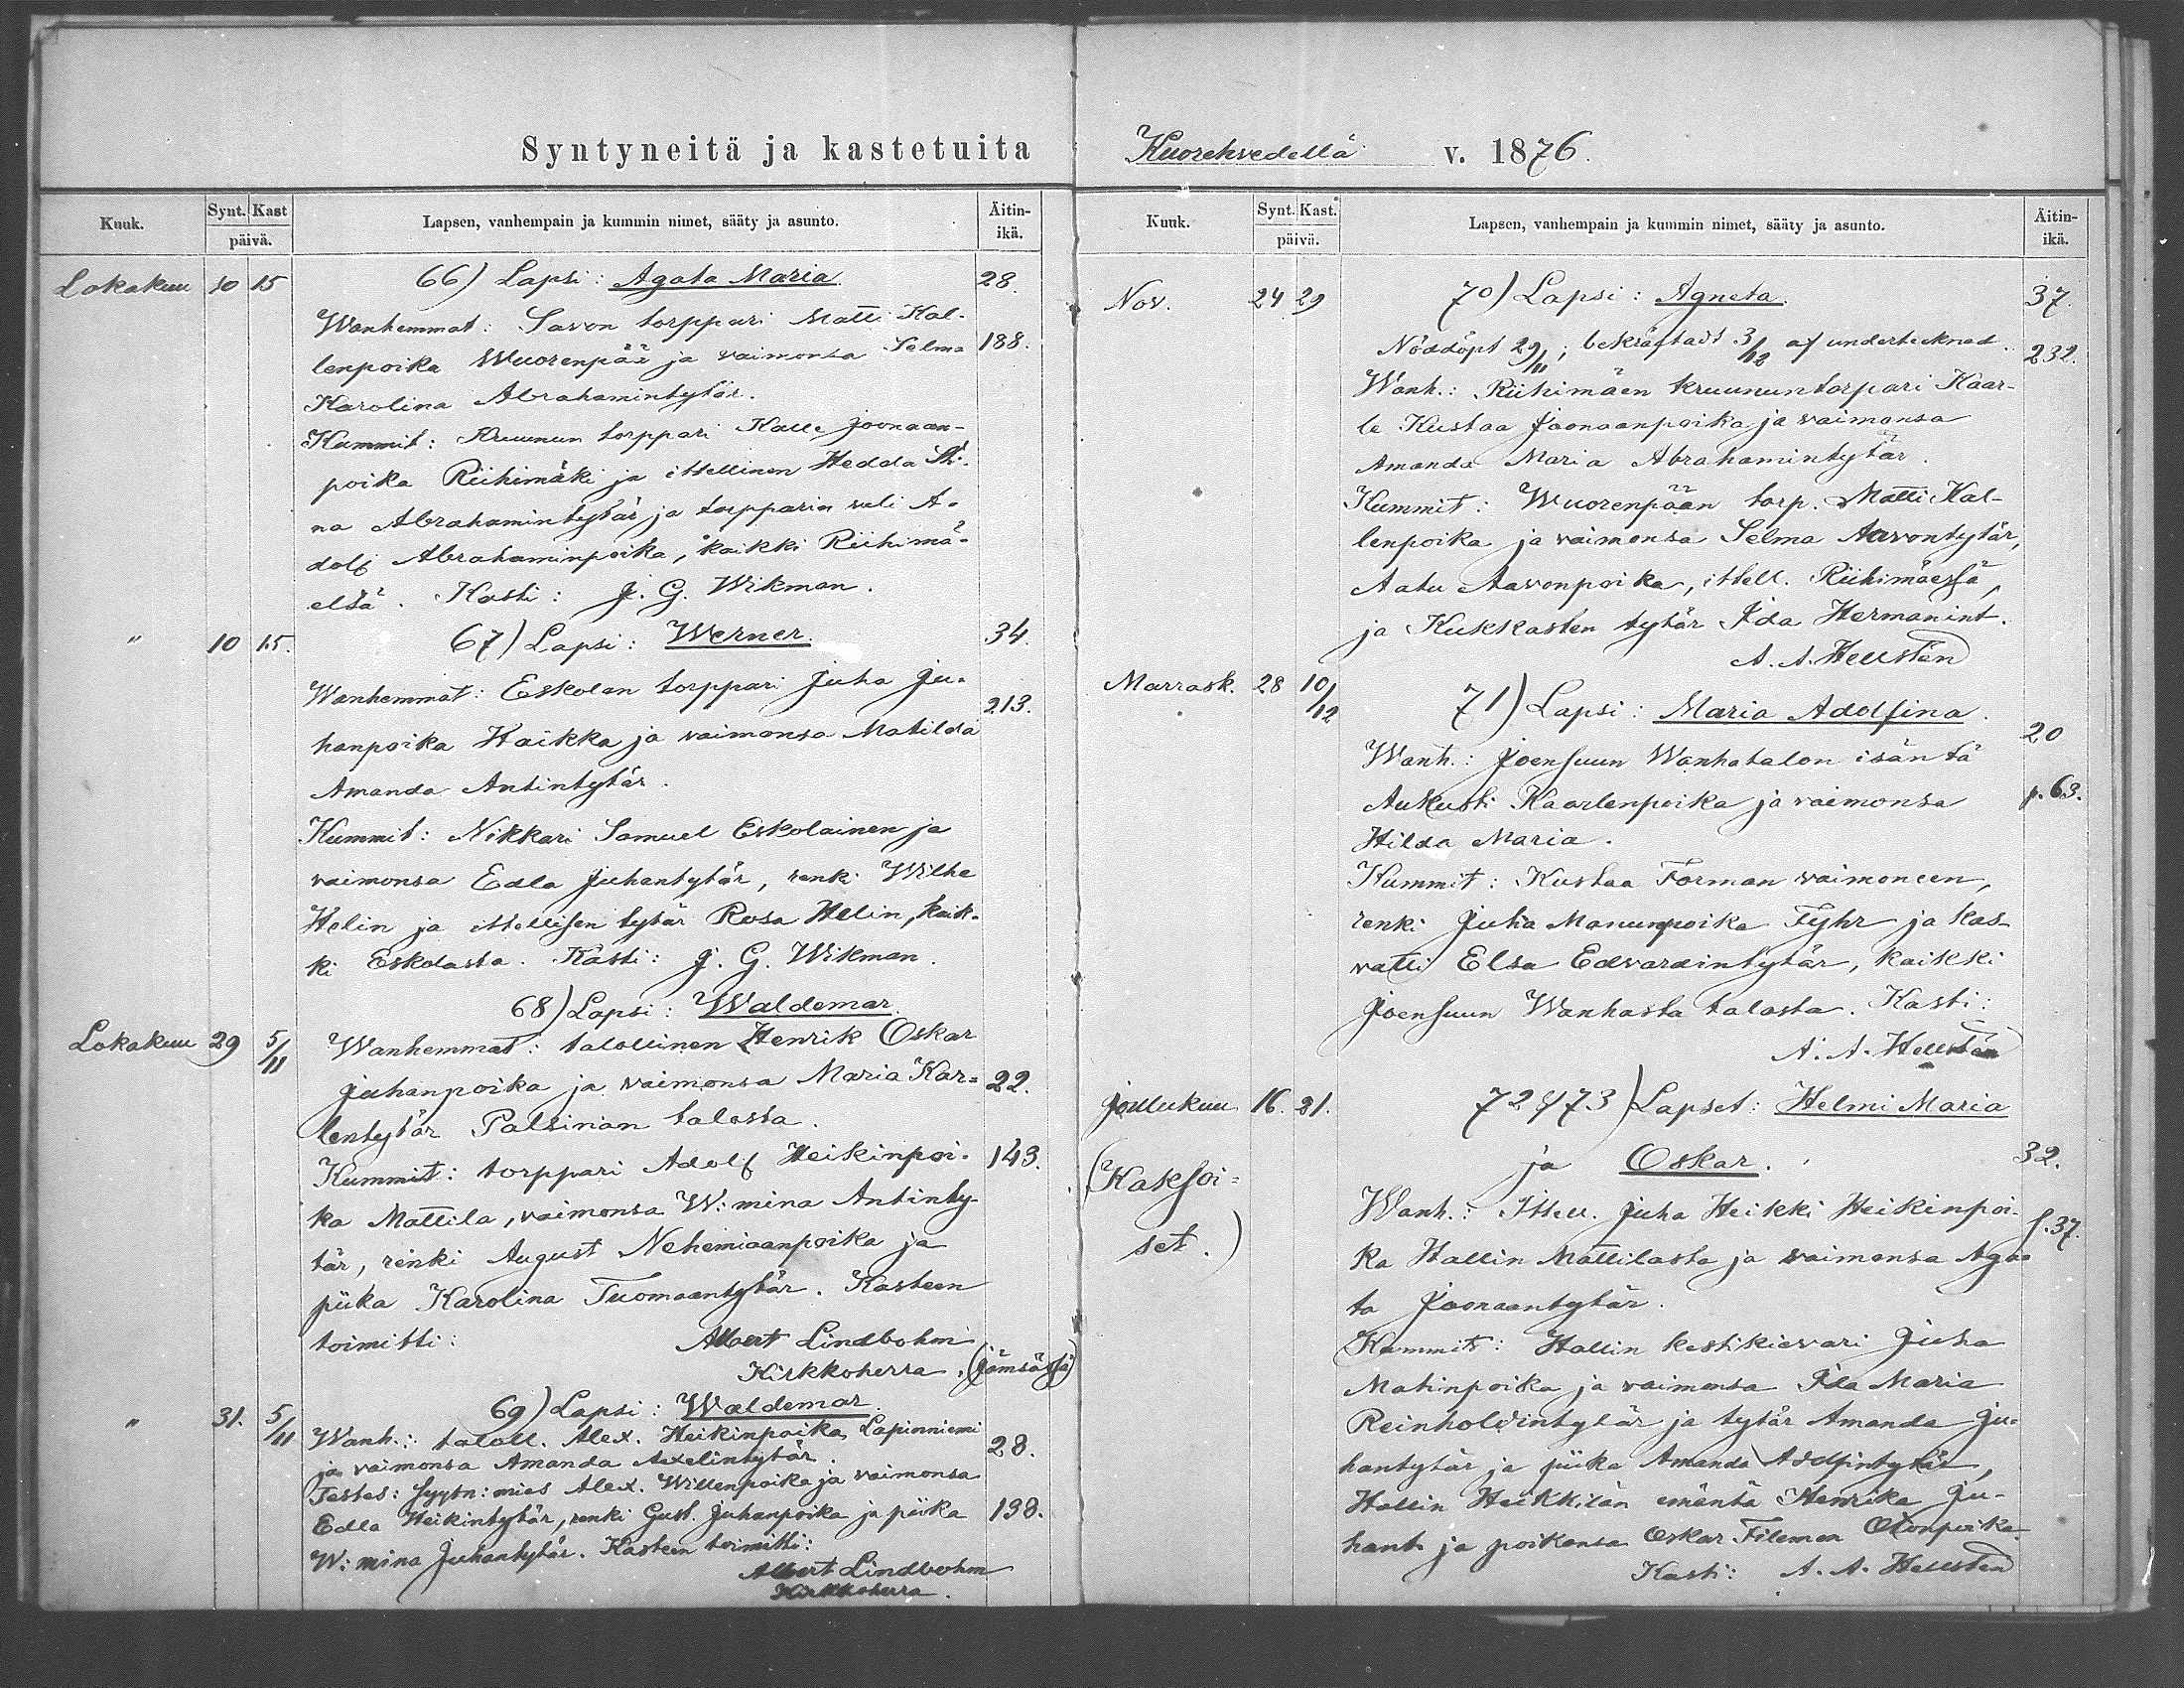 Syntyneitä ja kastetuita
Kuuk. Synt. Kast päivä. Lapsen, vanhempain ja kummin nimet, sääty ja asunto. Äitin-ikä.
Lokakuu 10 15 66) Lapsi: Agata Maria. 28.
Wanhemmat: Savon torppari Matti Kal-
lenpoika Wuorenpää ja vaimonsa Selma 188.
Karolina Abrahamintytär.
Kummit: Kruunun torppari Kalle Joonaan-
poika Riihimäki ja ittellinen Hedda Sti-
na Abrahamintytär ja torpparin veli A-
dolf Abrahaminpoika, kaikki Riihimä-
eltä. Kasti: J. G. Wikman.
" 10 15. 67) Lapsi: Werner. 34.
Wanhemmat: Eskolan torppari Juha Ju-
hanpoika Haikka ja vaimonsa Matilda 213.
Amanda Antintytär.
Kummit: Nikkari Samuel Eskolainen ja
vaimonsa Edla Juhantytär, renki Wilhe
Helin ja ittellisen tytär Rosa Helin, kaik-
ki Eskolasta. Kasti: J. G. Wikman.
68) Lapsi: Waldemar.
Lokakuu 29 5/11 Wanhemmat: talollinen Henrik Oskar
Juhanpoika ja vaimonsa Maria Kar= 22.
lentytär Palsinan talosta.
Kummit: torppari Adolf Heikinpoi- 143.
ka Mattila, vaimonsa W:mina Antinty-
tär, renki August Nehemiaanpoika ja
piika Karolina Tuomaantytär. Kasteen
toimitti: Albert Lindbohm
Kirkkoherra. (Jämsässä)
" 31. 5/11 69) Lapsi: Waldemar.
Wanh.: taloll. Alex. Heikinpoika Lapinniemi
ja vaimonsa Amanda Axelintytär. 28.
Testes: syytn:mies Alex. Willenpoika ja vaimonsa
Edla Heikintytär, renki Gust. Juhanpoika ja piika 138.
W:mina Juhantytär. Kasteen toimitti:
Albert Lindbohm
Kirkkoherra.
Kuorehvedellä v. 1876.
Kuuk. Synt. Kast. päivä. Lapsen, vanhempain ja kummin nimet, sääty ja asunto. Äitin-ikä.
Nov. 24 29 70) Lapsi: Agneta. 37.
Nöddöpt 29/11; bekräftadt 3/12 af undertecknad. 232.
Wanh.: Riihimäen kruununtorpari Kaar-
le Kustaa Joonaanpoika ja vaimonsa
Amanda Maria Abrahamintytär.
Kummit: Wuorenpään torp. Matti Kal-
lenpoika ja vaimonsa Selma Aavontytär,
Aatu Aavonpoika, ittell. Riihimäessä,
ja Kukkasten tytär Ida Hermanint.
A. A. Hellstén
Marrask. 28 10/12 71) Lapsi: Maria Adolfina.
20
Wanh.: Joensuun Wanhatalon isäntä
Aukusti Kaarlenpoika ja vaimonsa p. 63.
Hilda Maria.
Kummit: Kustaa Forman vaimoneen,
renki Juha Manunpoika Fyhr ja kas-
vatti Elsa Edvardintytär, kaikki
Joensuun Wanhasta talosta. Kasti:
A. A. Hellstén
Joulukuu 16. 21. 72 & 73) Lapset: Helmi Maria
(Kaksoi= ja Oskar. 32.
set.) Wanh.: Ittell. Juha Heikki Heikinpoi- p. 37.
ka Hallin Mattilasta ja vaimonsa Aga-
ta Joonaantytär.
Kummit: Hallin kestikievari Juha
Matinpoika ja vaimonsa Ida Maria
Reinholdintytär ja tytär Amanda Ju-
hantytär ja piika Amanda Adolfintytär,
Hallin Heikkilän emäntä Henrika Ju-
hant. ja poikansa Oskar Fileman Otonpoika.
Kasti: A. A. Hellstén